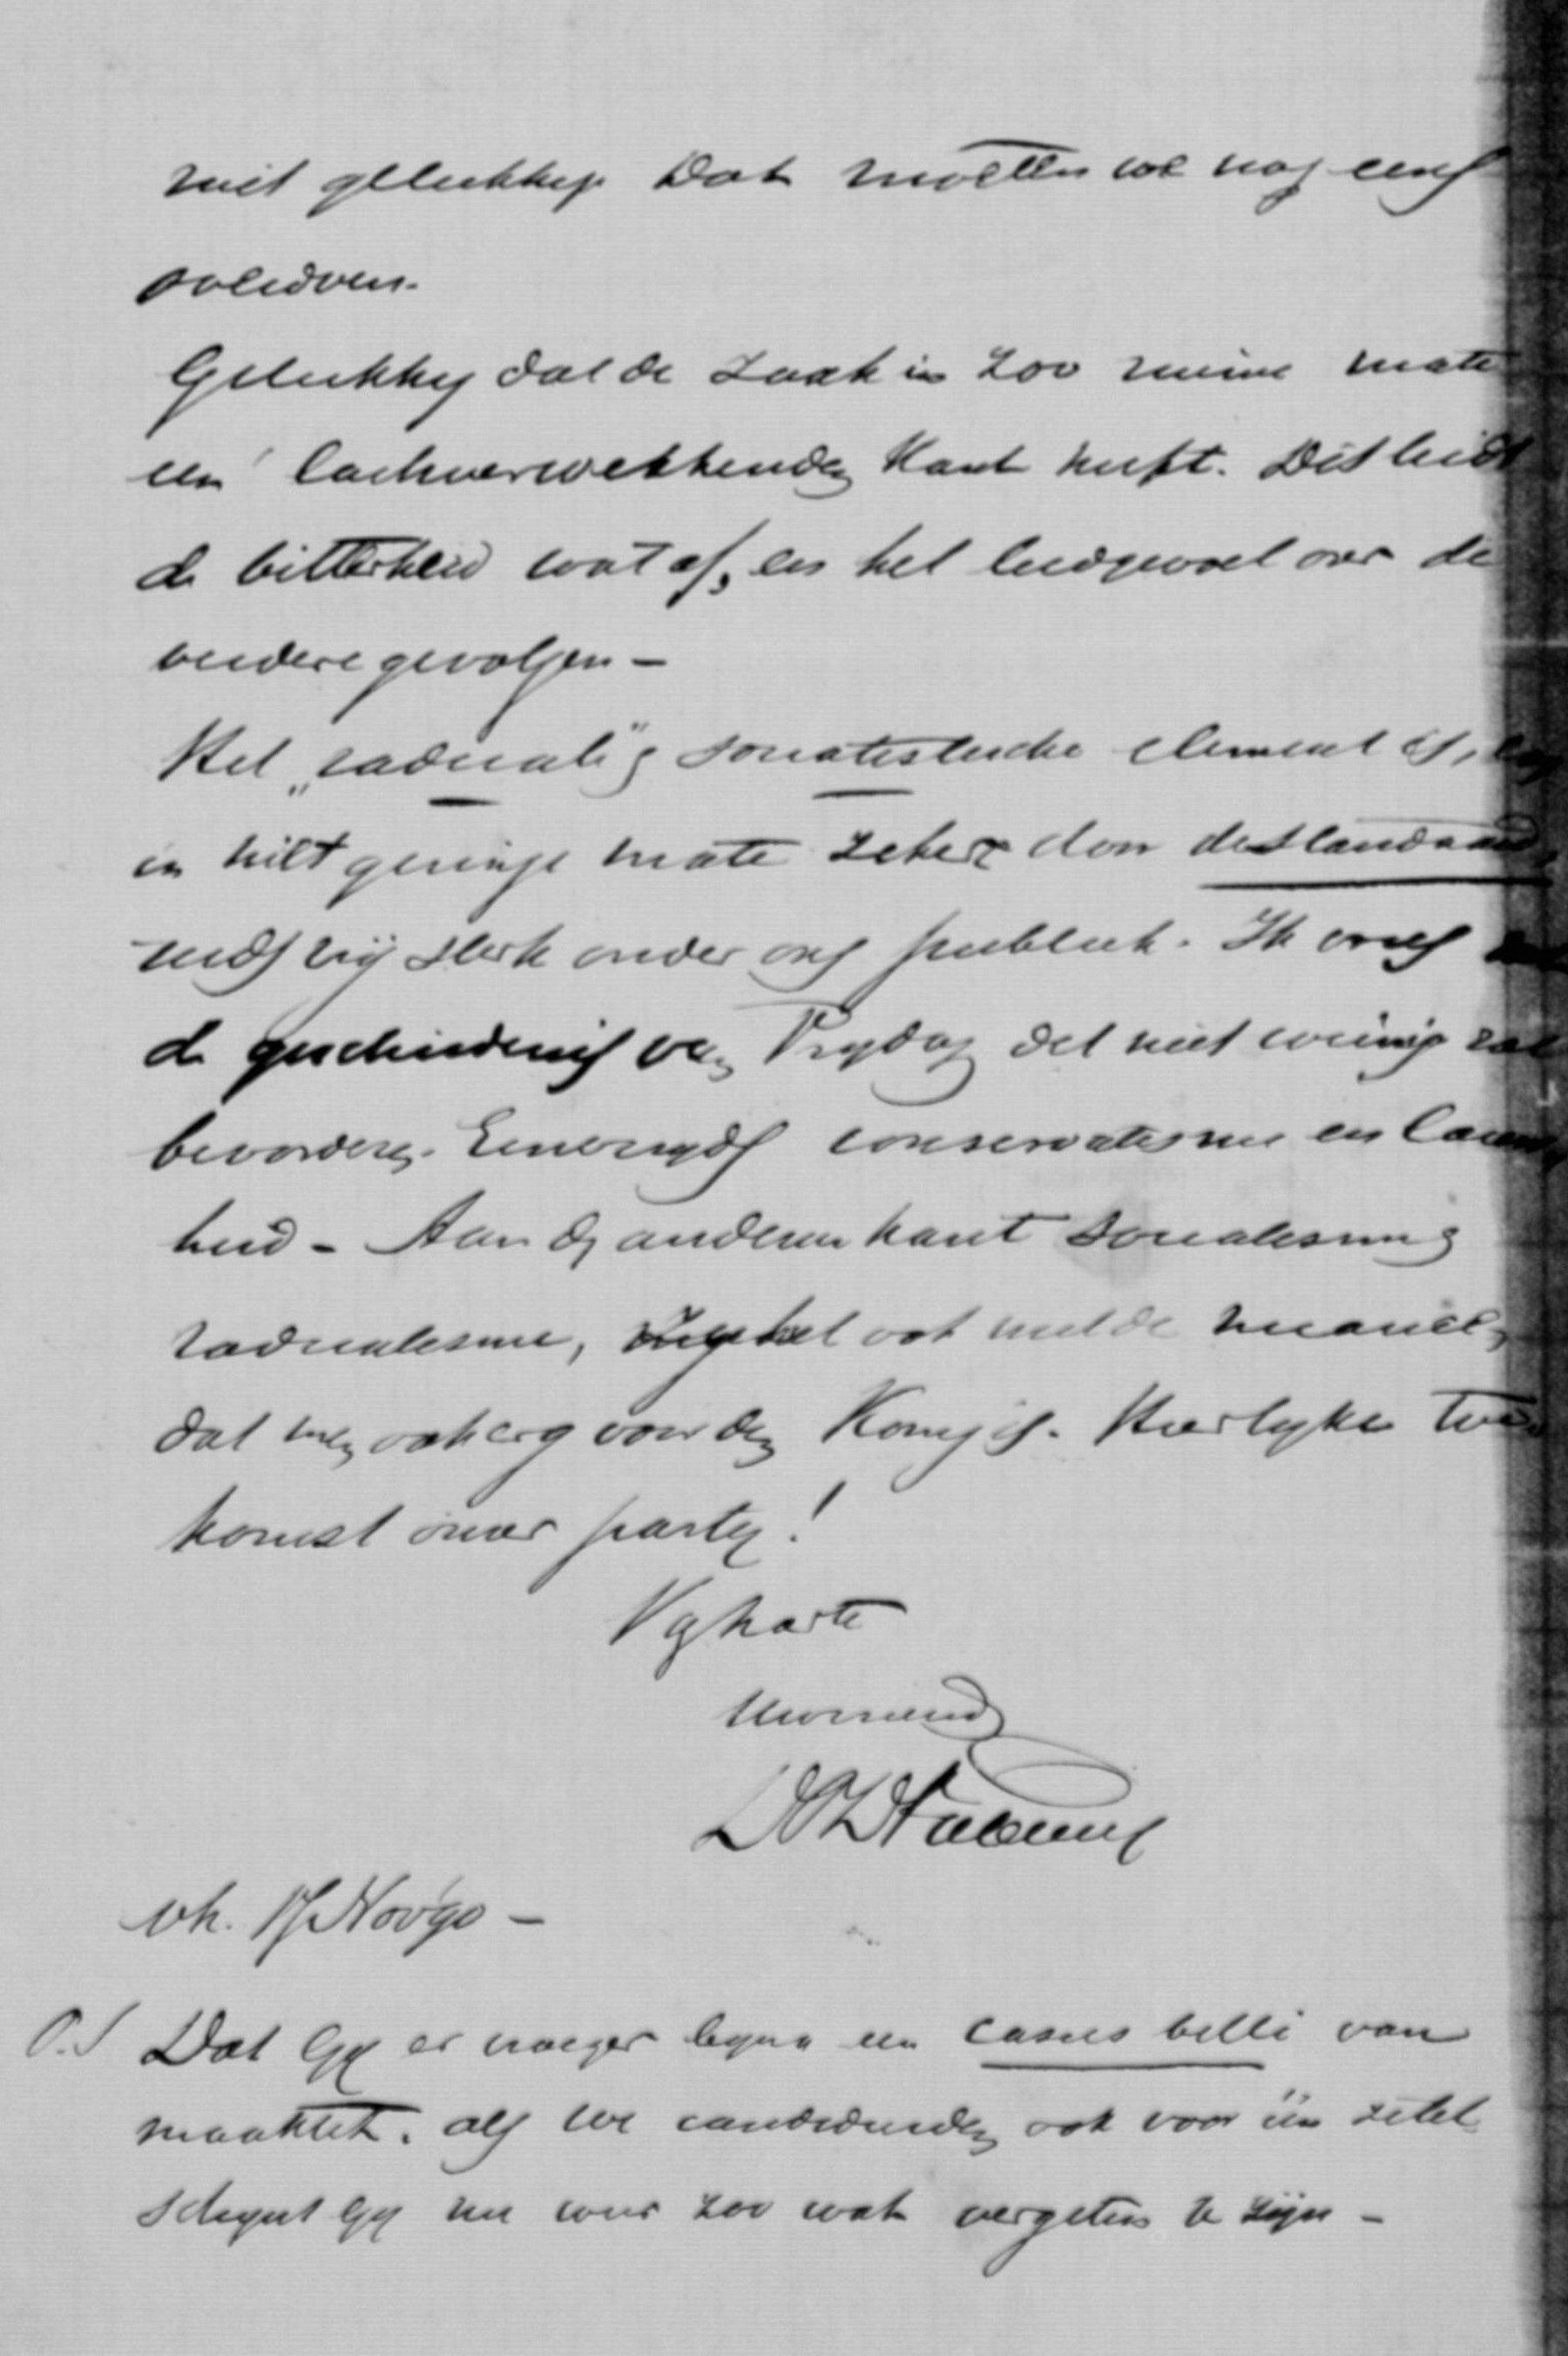 niet gelukkig. Dat moeten we nog eens
Gelukkig dat de zaak in zoo ruime mate
een lachverwekkenden kant heeft. Dit leidt
de bitterheid wat af, en het leedgevoel over de
verdere gevolgen –
Het „radicaal" en socialistische element is,
in niet geringe mate zeker door de Standaard,
reeds vrij sterk onder ons publiek. Ik vrees
de geschiedenis van Vrydag dat niet weinig zal
bevorderen. Eenerzyds conservatisme en
heid – Aan den anderen kant socialisme en
radicalisme, ook met de
dat men ook erg voor den Koning is. Heerlyke toe
komst onzer party!
Vgharte
Uwvriend
DPDFabius
vk. 17 Nov 90 –
P.S Dat Gy er vroeger byna een casus belli van
maaktet, als we candideerden ook voor één zetel
schynt Gy nu weer zoo wat vergeten te zyn –